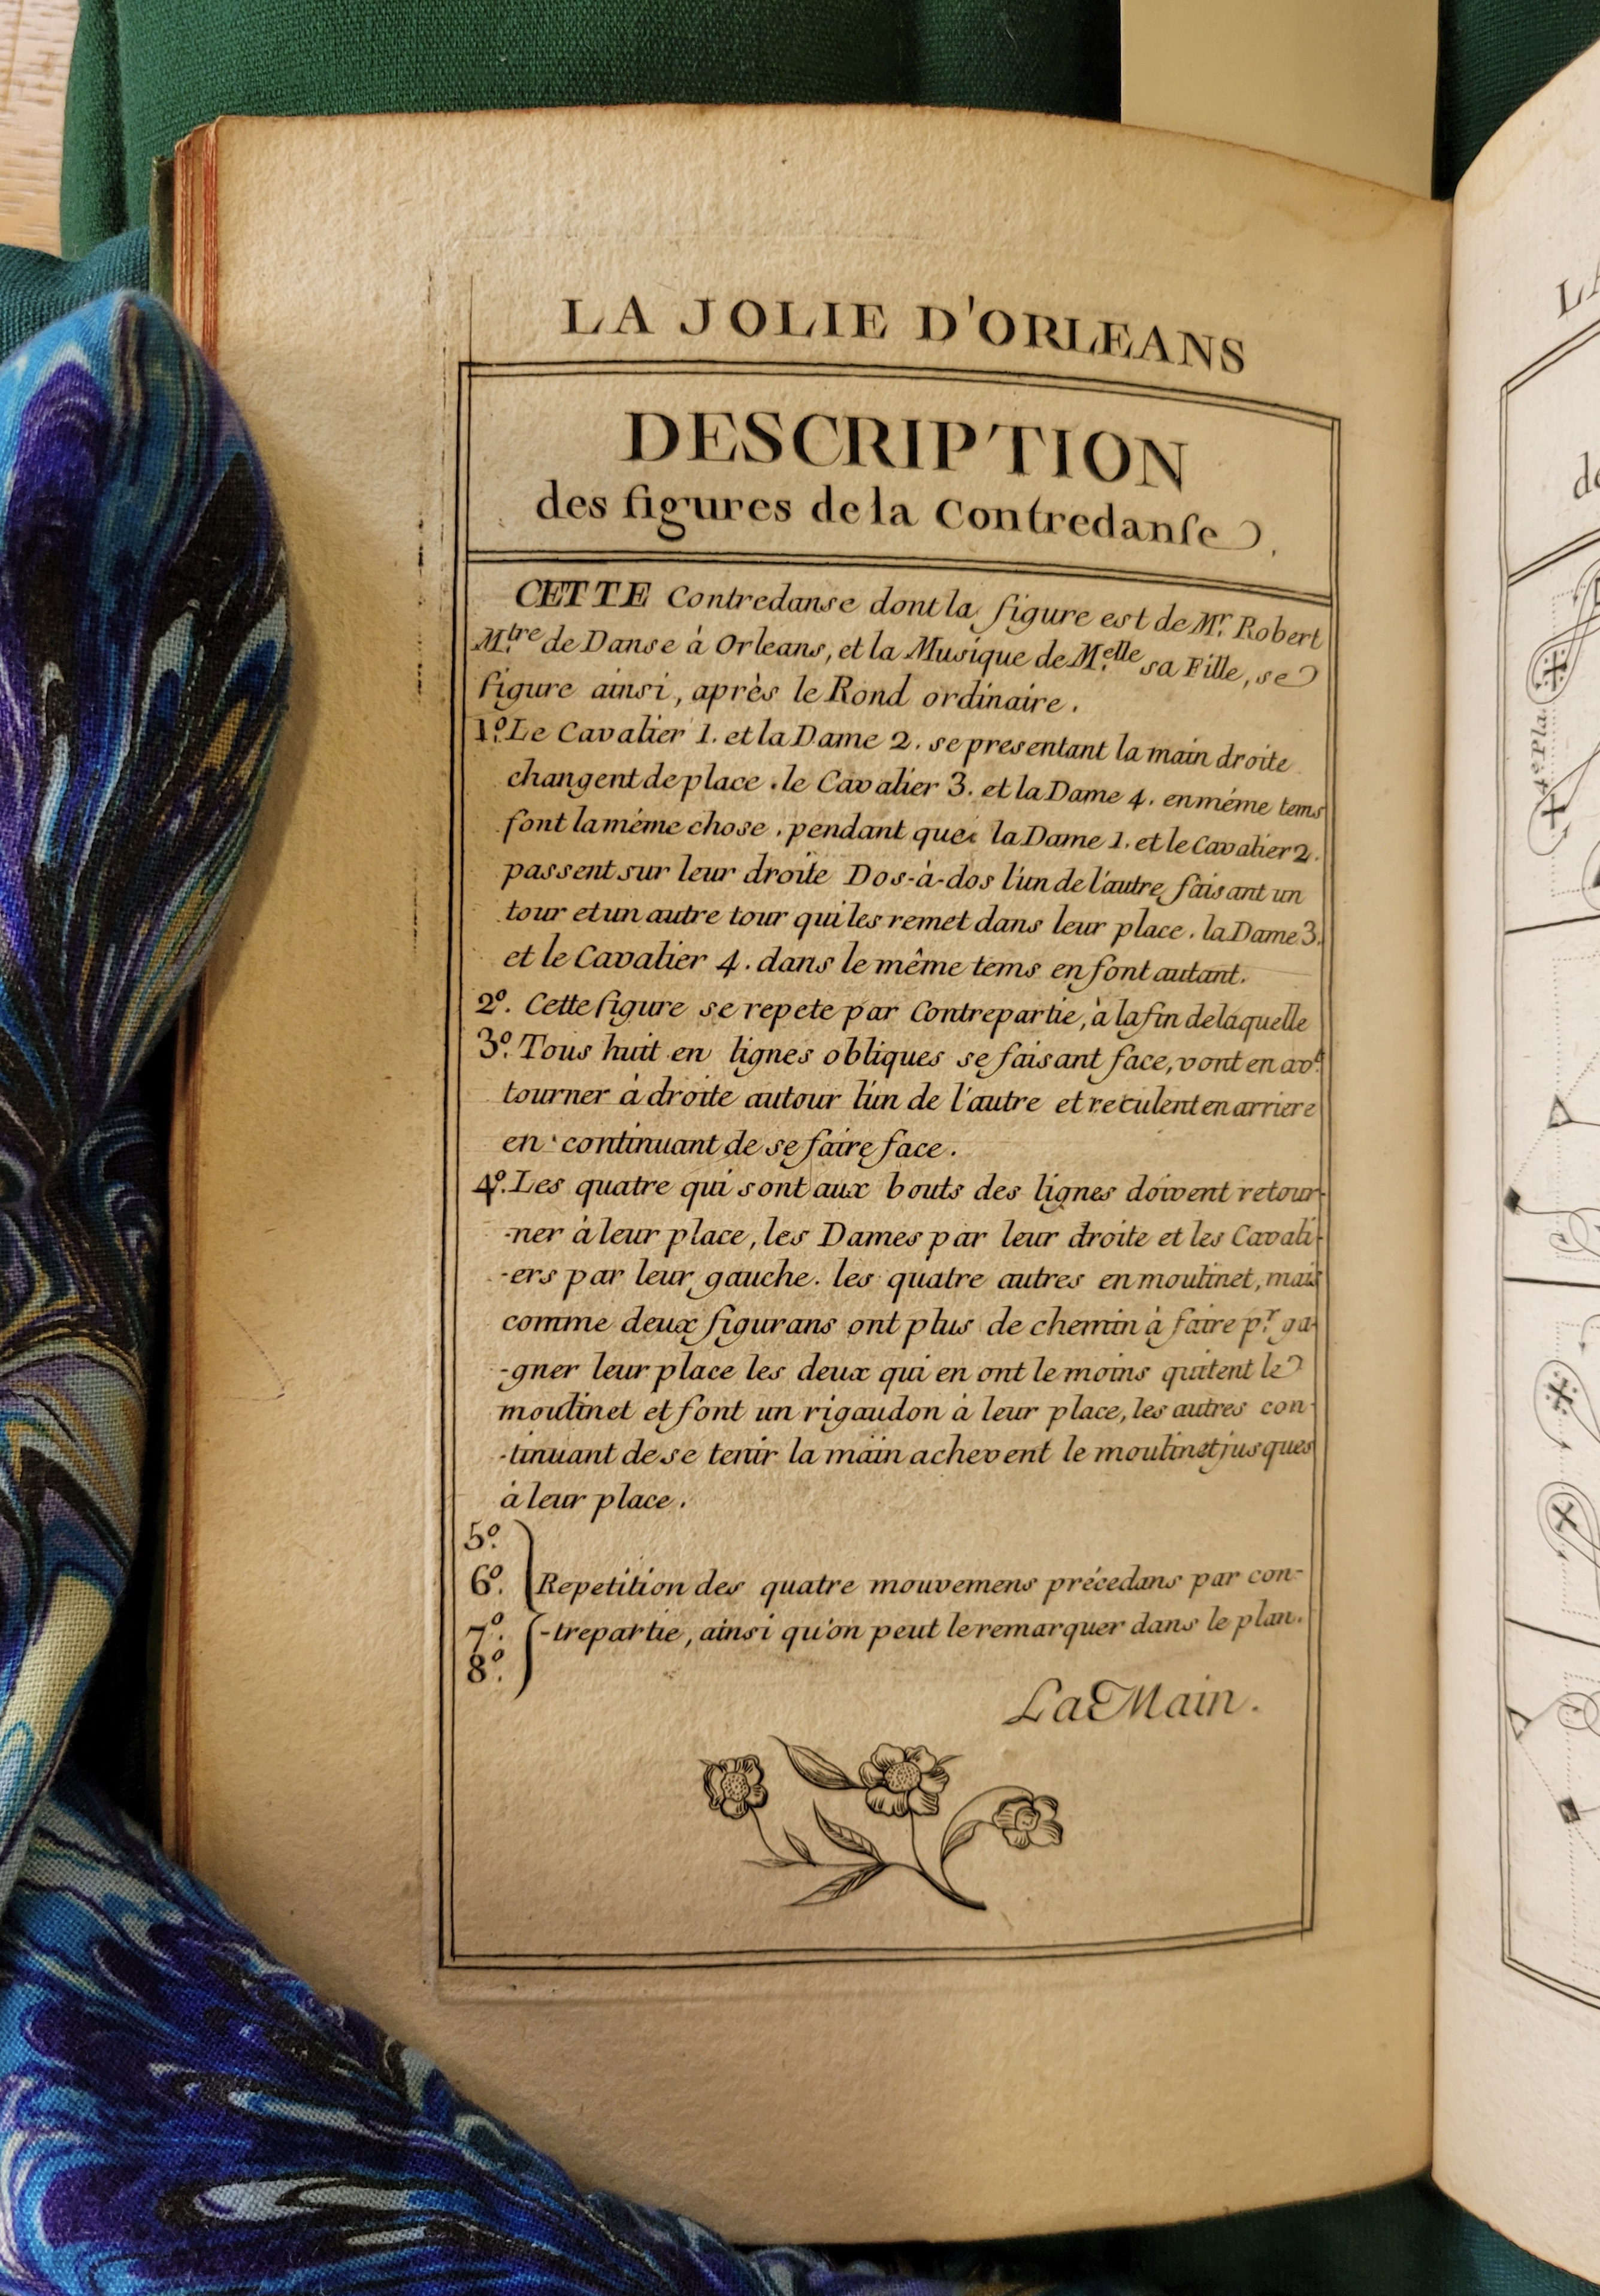 LA JOLIE D'ORLEANS
DESCRIPTION
des figures de la Contredanse
CETTE Contredanse dont la figure est de Mr. Robert
Mtre. de Danse à Orleans, et la Musique de Melle. sa Fille, se
figure ainsi, après le Rond ordinaire.
1º. Le Cavalier 1. et la Dame 2. se presentant la main droite
changent de place. le Cavalier 3. et la Dame 4. en même tems
font la même chose. pendant que la Dame 1. et le Cavalier 2.
passent sur leur droite Dos-à-dos l'un de l'autre faisant un
tour et un autre tour qui les remet dans leur place. la Dame 3.
et le Cavalier 4. dans le même tems en font autant.
2º. Cette figure se repete par Contrepartie, à la fin de laquelle
3º. Tous huit en lignes obliques se faisant face, vont en avt.
tourner à droite autour l'un de l'autre et reculent en arriere
en continuant de se faire face.
4º. Les quatre qui sont aux bouts des lignes doivent retour-
-ner à leur place, les Dames par leur droite et les Cavali-
-ers par leur gauche. les quatre autres en moulinet, mais
comme deux figurans ont plus de chemin à faire pr. ga-
-gner leur place les deux qui en ont le moins quitent le
moulinet et font un rigaudon à leur place, les autres con-
-tinuant de se tenir la main achevent le moulinet jusques
à leur place.
5º.
6º. Repetition des quatre mouvemens précedans par con-
7º. -trepartie, ainsi qu'on peut le remarquer dans le plan.
8º.
La Main.
LA
de
4e Pla.